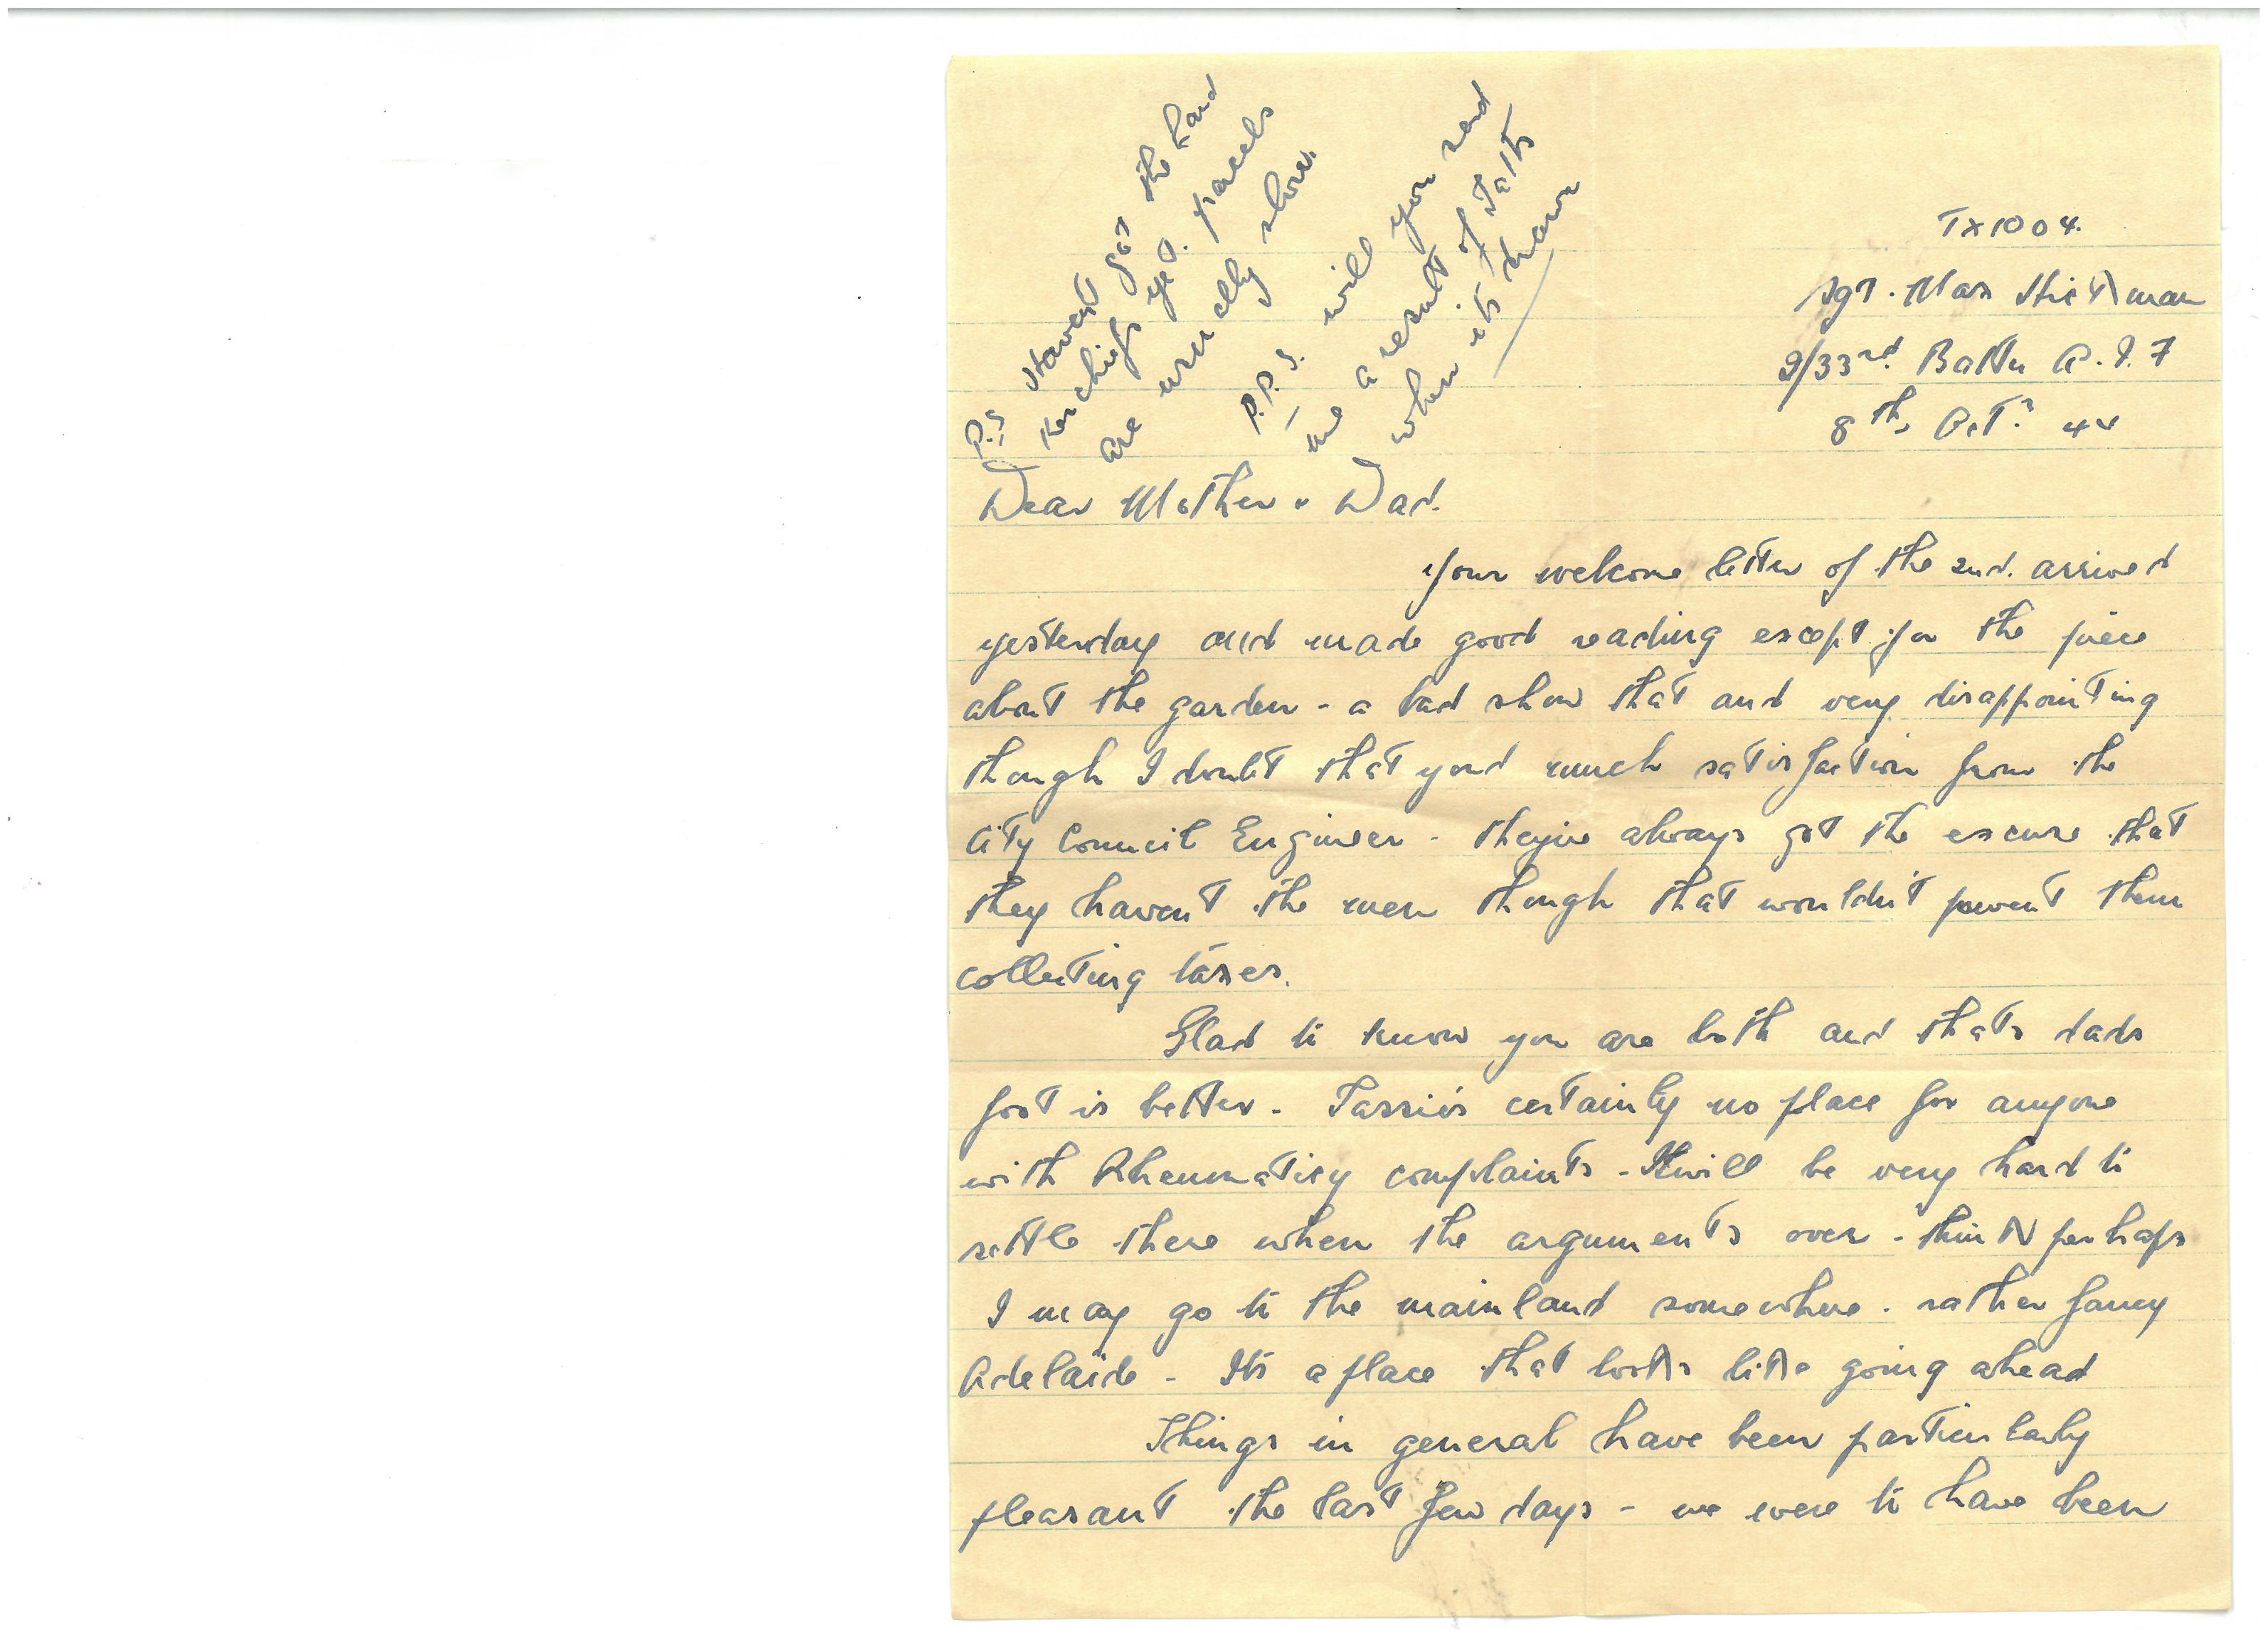 P.S Havent got the hand
kerchiefs yet. parcels
are usually slow.
P.P.S. will you send
me a result of Tatts
when its drawn
TX1004.
Sgt. Max Hickman
2/33rd. Battn A.I.F
8th, Oct. 44
Dear Mother & Dad.
Your welcome letter of the 2nd. arrived
yesterday and made good reading except for the piece
about the garden - a bad show that and very disappointing
though I doubt that youd much satisfaction from the
City Council Engineer - theyve always got the excuse that
they havent the men though that wouldnt prevent them
collecting taxes.
Glad to know you are both and thats dads
foot is better. Tassie's certainly no place for anyone
with Rheumaticy complaints - It will be very hard to
settle there when the arguments over - think perhaps
I may go to the mainland somewhere. rather fancy
Adelaide - Its a place that looks like going ahead
Things in general have been particularly
pleasant the last few days - we were to have been